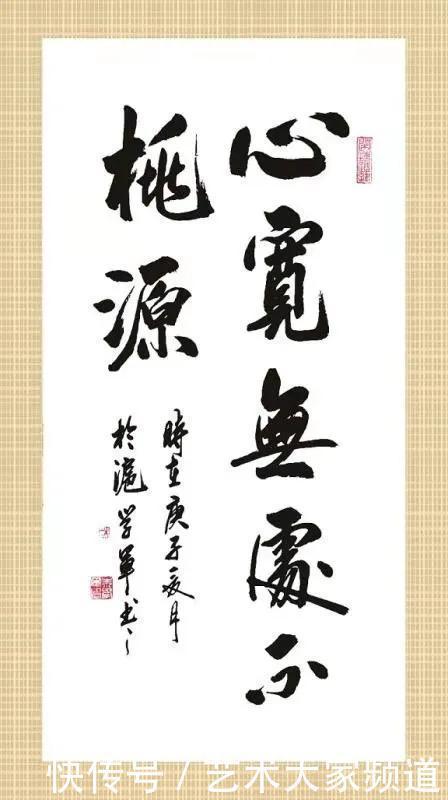 心寬無處不
桃源
時在庚子夏月
於滬学軍书
快传号 / 艺术大家频道